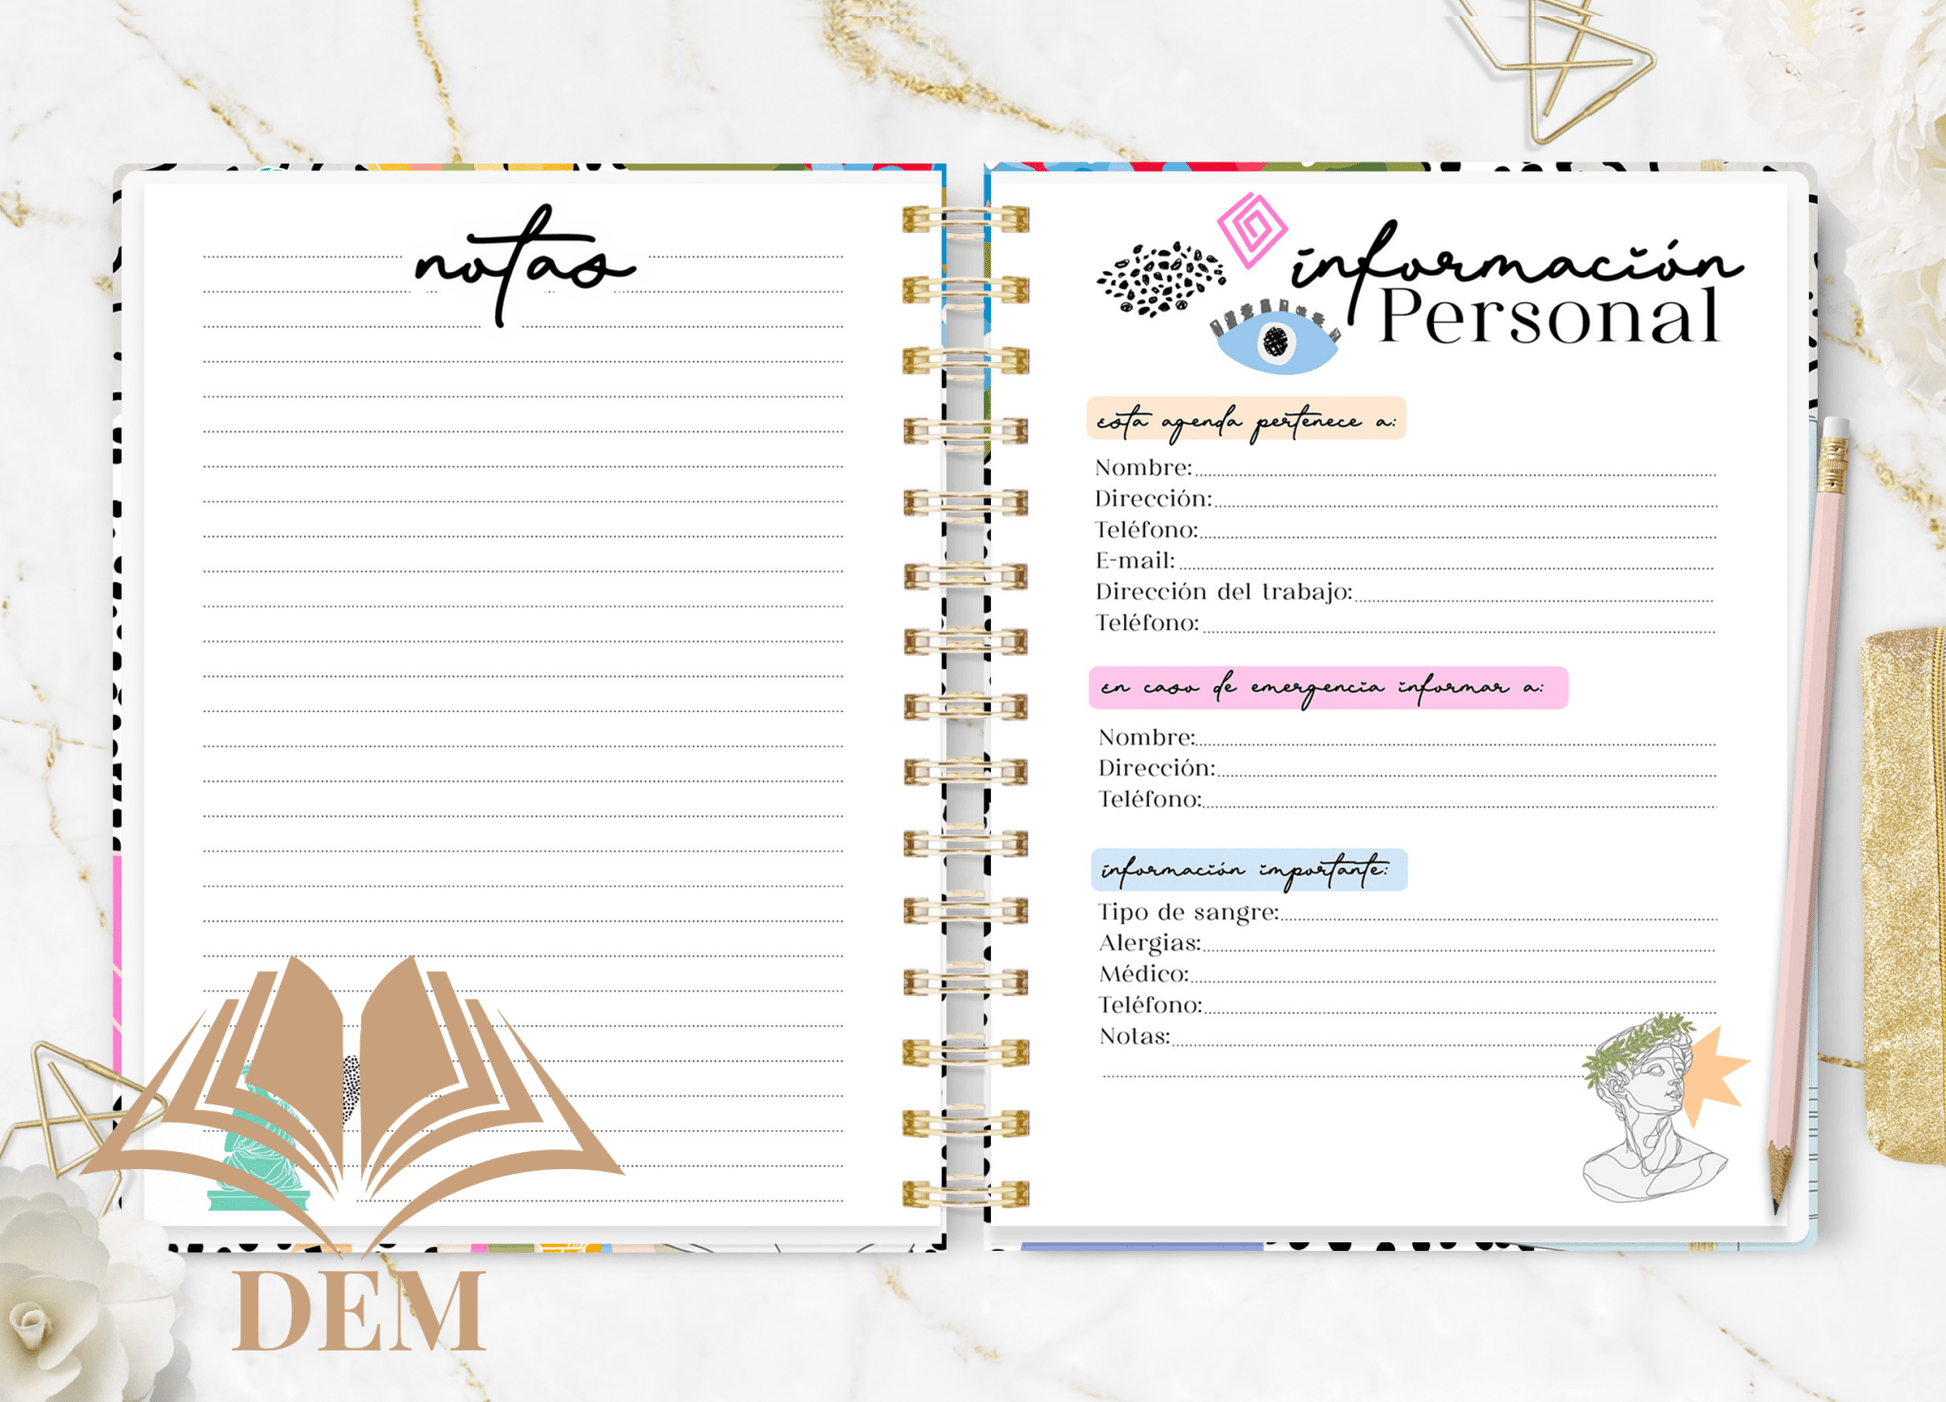 notas
información
Personal
esta agenda pertenece a:
Nombre:
Dirección:
Teléfono:
E-mail:
Dirección del trabajo:
Teléfono:
en caso de emergencia informar a:
Nombre:
Dirección:
Teléfono:
información importante:
Tipo de sangre:
Alergias:
Médico:
Teléfono:
Notas:
DEM